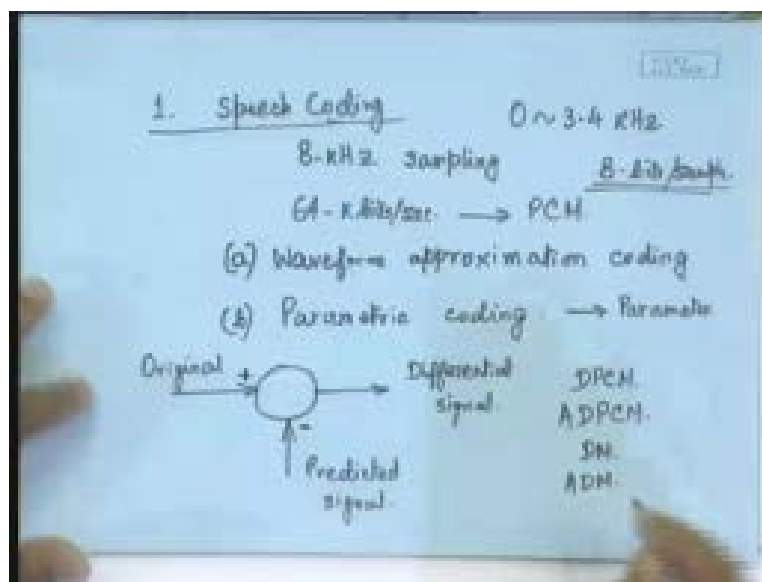 1. Speech Coding
0 ~ 3.4 KHz
8-KHz sampling
8-bits/sample
64-Kbits/sec. → PCM
(a) Waveform approximation coding
(b) Parametric coding → Parameter
Original
+
Differential signal
-
Predicted signal
DPCM.
ADPCM.
DM.
ADM.